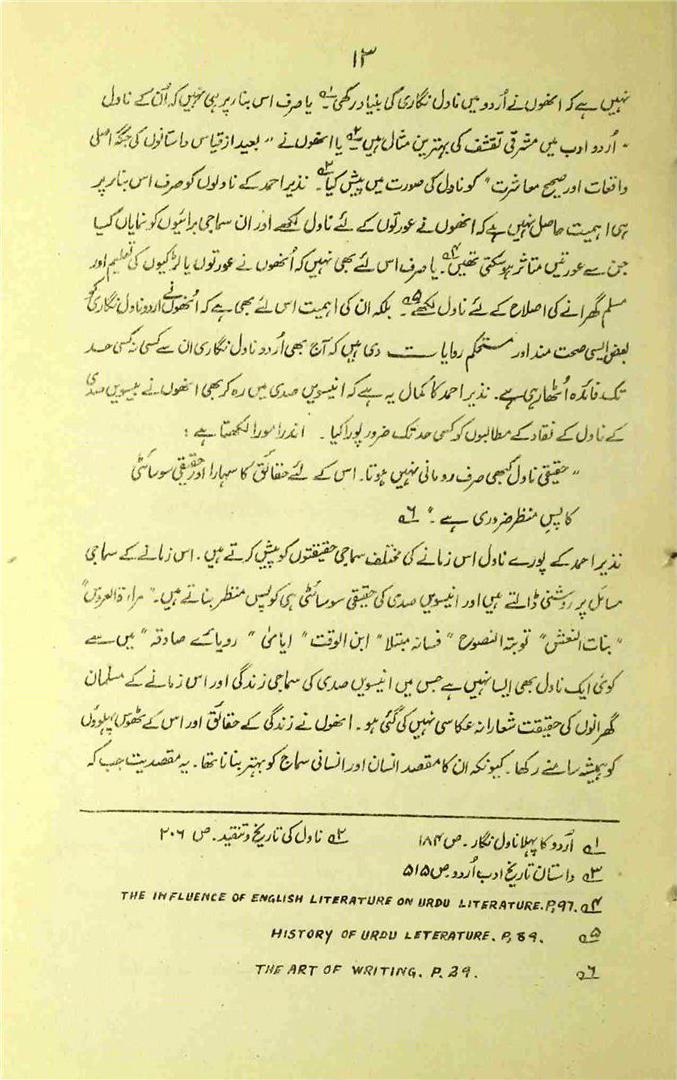 ۱۳
نہیں ہے کہ انھوں نے اُردو میں ناول نگاری کی بنیاد رکھی۱؎ یا صرف اس بنا پر ہی نہیں کہ اُن کے ناول
"اُردو ادب میں مشرقی تقشف کی بہترین مثال ہیں"۲؎ یا انھوں نے "بعید از قیاس داستانوں کی جگہ اصلی
واقعات اور صحیح معاشرت" کو ناول کی صورت میں پیش کیا۳؎۔ نذیر احمد کے ناولوں کو صرف اس بنا پر
ہی اہمیت حاصل نہیں ہے کہ انھوں نے عورتوں کے لئے ناول لکھے اور ان سماجی برائیوں کو نمایاں کیا
جن سے عورتیں متاثر ہو سکتی تھیں۴؎۔ یا صرف اس لئے بھی نہیں کہ اُنھوں نے عورتوں یا لڑکیوں کی تعلیم اور
مسلم گھرانے کی اصلاح کے لئے ناول لکھے۵؎ بلکہ ان کی اہمیت اس لئے بھی ہے کہ انھوں نے اُردو ناول نگاری کو
بعض ایسی صحت مند اور مستحکم روایات دی ہیں کہ آج بھی اُردو ناول نگاری ان سے کسی نہ کسی حد
تک فائدہ اُٹھا رہی ہے۔ نذیر احمد کا کمال یہ ہے کہ انیسویں صدی میں رہ کر بھی انھوں نے بیسویں صدی
کے ناول کے نقاد کے مطالبوں کو کسی حد تک ضرور پورا کیا۔ اندرا مورا لکھتا ہے:
"حقیقی ناول کبھی صرف رومانی نہیں ہوتا۔ اس کے لئے حقائق کا سہارا اور حقیقی سوسائٹی
کا پس منظر ضروری ہے۔"۶؎
نذیر احمد کے پورے ناول اس زمانے کی مختلف سماجی حقیقتوں کو پیش کرتے ہیں۔ اس زمانے کے سماجی
مسائل پر روشنی ڈالتے ہیں اور انیسویں صدی کی حقیقی سوسائٹی ہی کو پس منظر بناتے ہیں۔ "مراۃ العروس"
"بنات النعش" توبتہ النصوح" فسانہ مبتلا" ابن الوقت" ایامیٰ" رویائے صادقہ" میں سے
کوئی ایک ناول بھی ایسا نہیں ہے جس میں انیسویں صدی کی سماجی زندگی اور اس زمانے کے مسلمان
گھرانوں کی حقیقت شعارانہ عکاسی نہیں کی گئی ہو۔ انھوں نے زندگی کے حقائق اور اس کے ٹھوس پہلوؤں
کو ہمیشہ سامنے رکھا۔ کیونکہ ان کا مقصد انسان اور انسانی سماج کو بہتر بنانا تھا۔ یہ مقصدیت جب کہ
۱؎ اُردو کا پہلا ناول نگار۔ ص ۱۸۴ ۲؎ ناول کی تاریخ و تنقید۔ ص ۲۰۶
۳؎ داستان تاریخ ادب اُردو۔ ص ۵۱۵
۴؎ THE INFLUENCE OF ENGLISH LITERATURE ON URDU LITERATURE. P, 97.
۵؎ HISTORY OF URDU LETERATURE. P, 89.
۶؎ THE ART OF WRITING. P. 29.